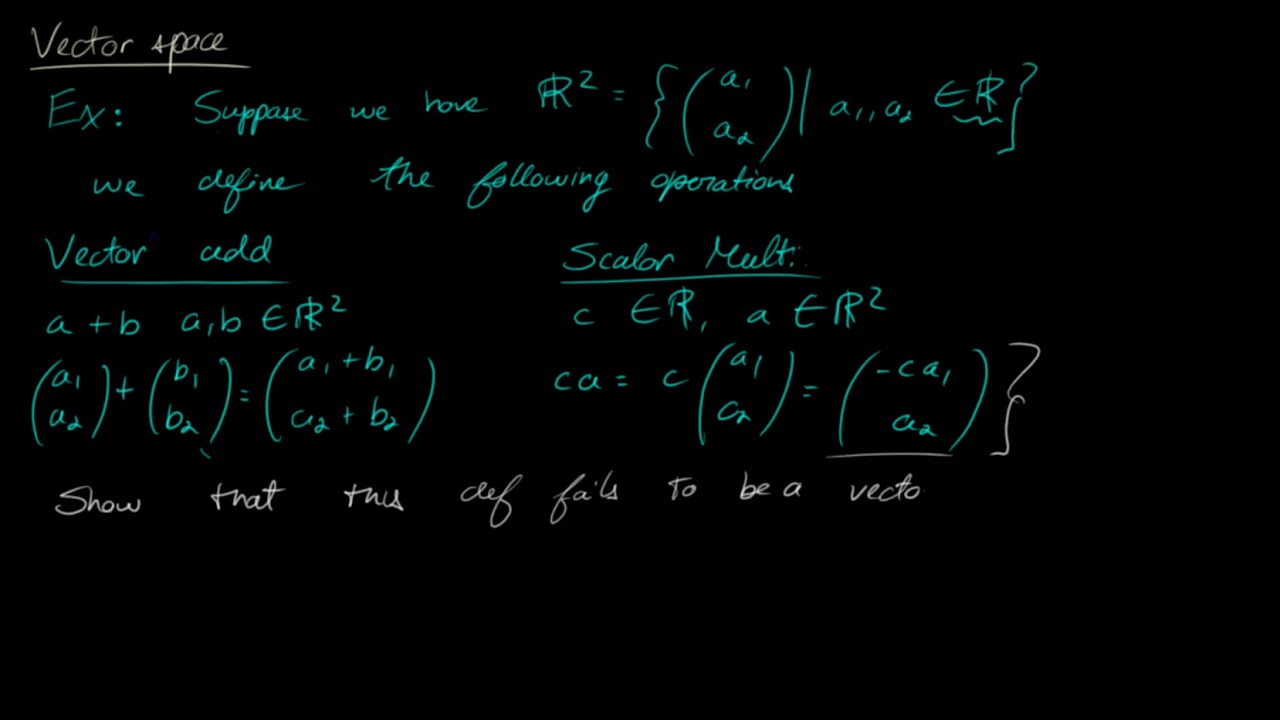 Vector space
Ex: Suppose we have ℝ² = { ( a₁ a₂ ) | a₁, a₂ ∈ ℝ }
we define the following operations
Vector add
a + b a, b ∈ ℝ²
( a₁ a₂ ) + ( b₁ b₂ ) = ( a₁ + b₁ a₂ + b₂ )
Scalar Mult:
c ∈ ℝ, a ∈ ℝ²
ca = c ( a₁ a₂ ) = ( -ca₁ a₂ ) }
Show that this def fails to be a vecto